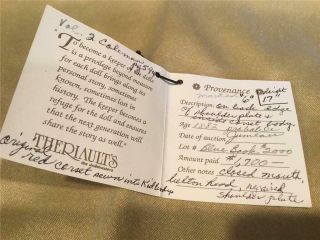 Vol. 2 Coleman
pg 594
"To become a keeper of
is a privilege beyond measure
for each doll brings along its
personal story, sometimes
known, sometimes lost in
history. The keeper becomes a
refuge for the doll and ensures
that the next generation will
share the story as well."
THERIAULT'S
the dollmasters
original
red corset sewn into Kid body
Provenance Height
marked "6" 17"
Description: on back edge
of shoulder plate &
corset body
Age: 1882 probable
Date of auction: Jumeau
Lot # Blue Book $2000
Amount paid $1,700—
Other notes: closed mouth,
Belton Head,
shoulder plate